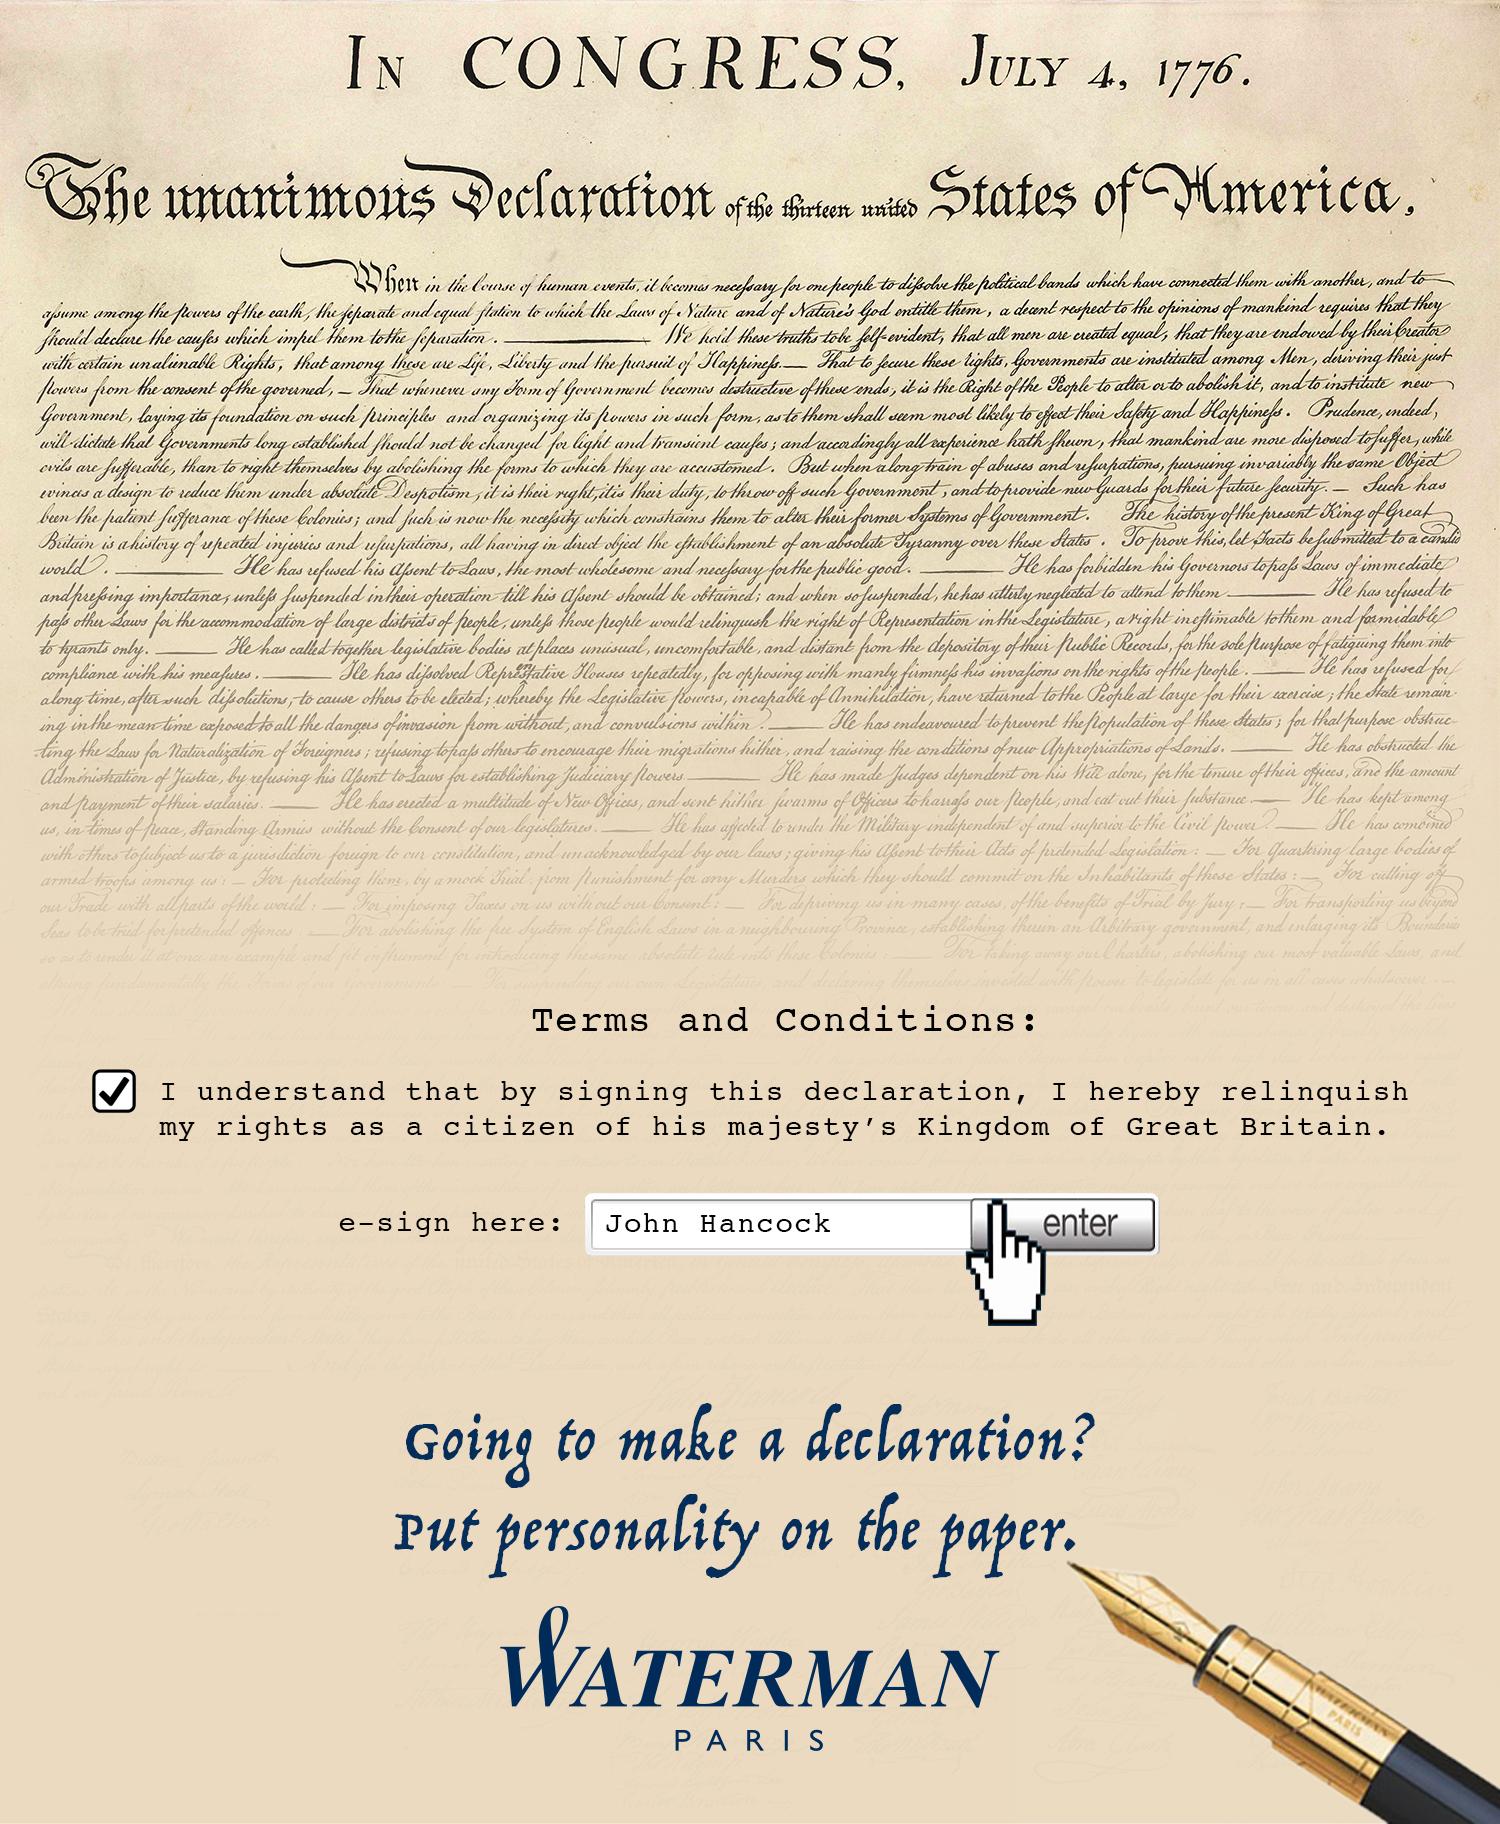 In CONGRESS, July 4, 1776.
The unanimous Declaration of the thirteen united States of America,
When in the Course of human events, it becomes necessary for one people to dissolve the political bands which have connected them with another, and to
assume among the powers of the earth, the separate and equal station to which the Laws of Nature and of Nature's God entitle them, a decent respect to the opinions of mankind requires that they
should declare the causes which impel them to the separation. ——— We hold these truths to be self-evident, that all men are created equal, that they are endowed by their Creator
with certain unalienable Rights, that among these are Life, Liberty and the pursuit of Happiness. — That to secure these rights, Governments are instituted among Men, deriving their just
powers from the consent of the governed, — That whenever any Form of Government becomes destructive of these ends, it is the Right of the People to alter or to abolish it, and to institute new
Government, laying its foundation on such principles and organizing its powers in such form, as to them shall seem most likely to effect their Safety and Happiness. Prudence, indeed,
will dictate that Governments long established should not be changed for light and transient causes; and accordingly all experience hath shewn, that mankind are more disposed to suffer, while
evils are sufferable, than to right themselves by abolishing the forms to which they are accustomed. But when a long train of abuses and usurpations, pursuing invariably the same Object
evinces a design to reduce them under absolute Despotism, it is their right, it is their duty, to throw off such Government, and to provide new Guards for their future security. — Such has
been the patient sufferance of these Colonies; and such is now the necessity which constrains them to alter their former Systems of Government. The history of the present King of Great
Britain is a history of repeated injuries and usurpations, all having in direct object the establishment of an absolute Tyranny over these States. To prove this, let Facts be submitted to a candid
world. ——— He has refused his Assent to Laws, the most wholesome and necessary for the public good. ——— He has forbidden his Governors to pass Laws of immediate
and pressing importance, unless suspended in their operation till his Assent should be obtained; and when so suspended, he has utterly neglected to attend to them. ——— He has refused to
pass other Laws for the accommodation of large districts of people, unless those people would relinquish the right of Representation in the Legislature, a right inestimable to them and formidable
to tyrants only. ——— He has called together legislative bodies at places unusual, uncomfortable, and distant from the depository of their Public Records, for the sole purpose of fatiguing them into
compliance with his measures. ——— He has dissolved Representative Houses repeatedly, for opposing with manly firmness his invasions on the rights of the people. ——— He has refused for
a long time, after such dissolutions, to cause others to be elected; whereby the Legislative powers, incapable of Annihilation, have returned to the People at large for their exercise; the State remain-
ing in the mean time exposed to all the dangers of invasion from without, and convulsions within. ——— He has endeavoured to prevent the population of these States; for that purpose obstruc-
ting the Laws for Naturalization of Foreigners; refusing to pass others to encourage their migrations hither, and raising the conditions of new Appropriations of Lands. ——— He has obstructed the
Administration of Justice, by refusing his Assent to Laws for establishing Judiciary powers. ——— He has made Judges dependent on his Will alone, for the tenure of their offices, and the amount
and payment of their salaries. ——— He has erected a multitude of New Offices, and sent hither swarms of Officers to harrass our people, and eat out their substance. ——— He has kept among
us, in times of peace, Standing Armies without the Consent of our legislatures. ——— He has affected to render the Military independent of and superior to the Civil power. ——— He has combined
with others to subject us to a jurisdiction foreign to our constitution, and unacknowledged by our laws; giving his Assent to their Acts of pretended Legislation: — For Quartering large bodies of
armed troops among us: — For protecting them, by a mock Trial, from punishment for any Murders which they should commit on the Inhabitants of these States: — For cutting off
our Trade with all parts of the world: — For imposing Taxes on us without our Consent: — For depriving us in many cases, of the benefits of Trial by Jury: — For transporting us beyond
Seas to be tried for pretended offences — For abolishing the free System of English Laws in a neighbouring Province, establishing therein an Arbitrary government, and enlarging its Boundaries
so as to render it at once an example and fit instrument for introducing the same absolute rule into these Colonies: — For taking away our Charters, abolishing our most valuable Laws, and
altering fundamentally the Forms of our Governments: — For suspending our own Legislatures, and declaring themselves invested with power to legislate for us in all cases whatsoever. —
Terms and Conditions:
I understand that by signing this declaration, I hereby relinquish
my rights as a citizen of his majesty's Kingdom of Great Britain.
e-sign here: John Hancock enter
Going to make a declaration?
Put personality on the paper.
WATERMAN
PARIS
WATERMAN
PARIS